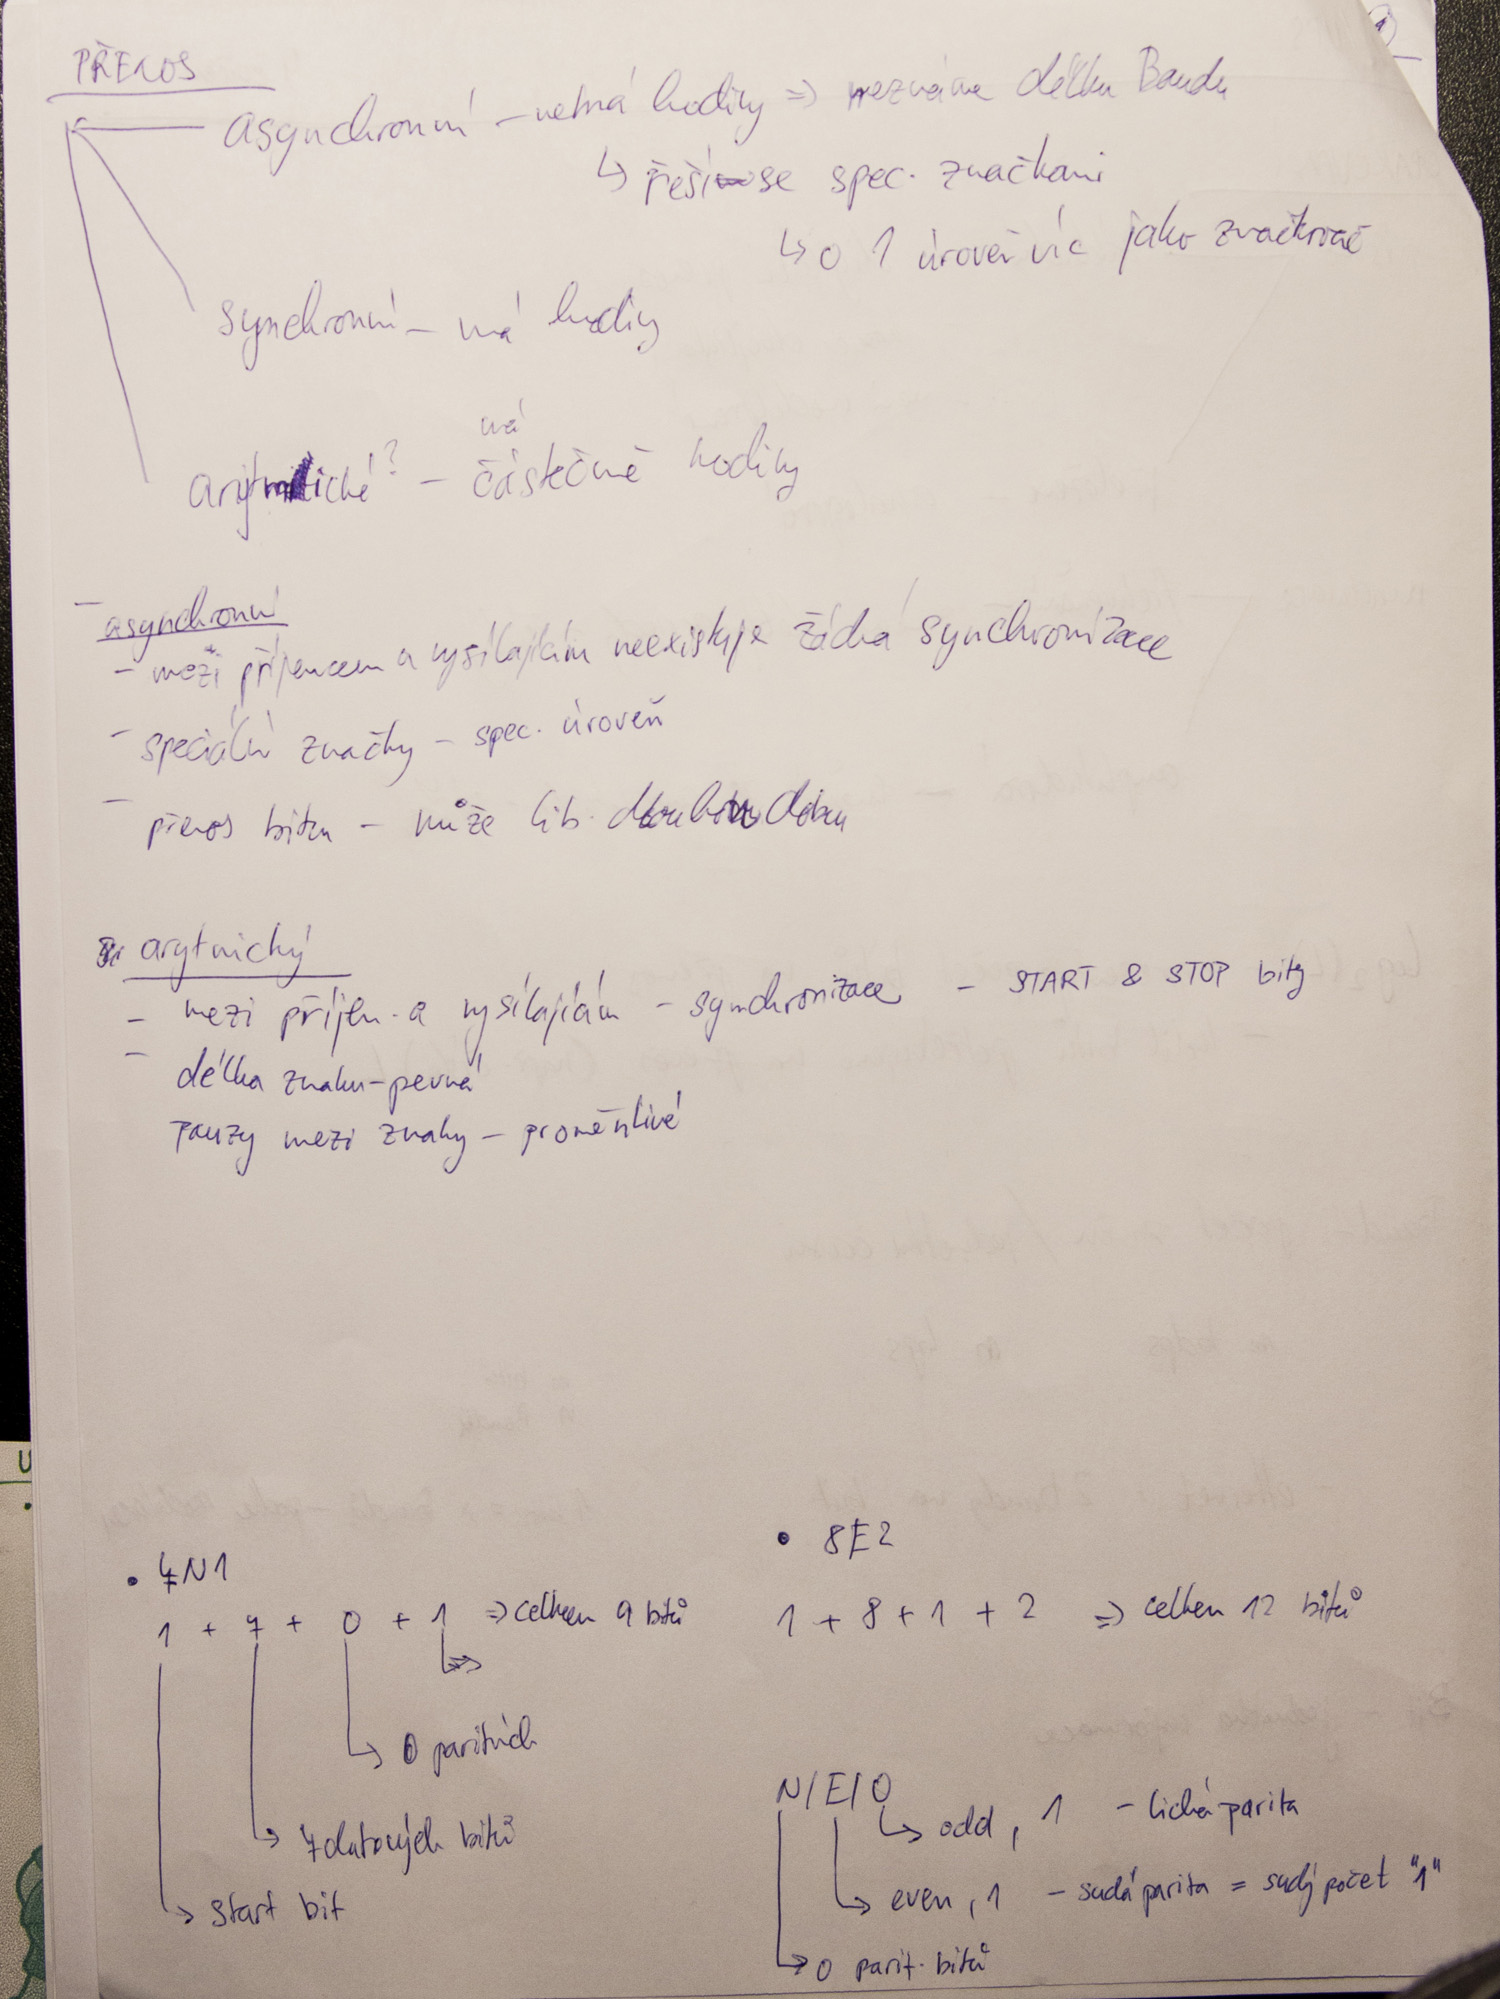 PŘENOS
asynchronní – nemá hodiny => neznáme délku Baudu
↳ řeší se spec. značkami
↳ o 1 úroveň víc jako značkovač
synchronní – má hodiny
má
arytmické? – částečně hodiny
– asynchronní
– mezi příjemcem a vysílajícím neexistuje žádná synchronizace
– speciální značky – spec. úroveň
– přenos bitu – může lib. dlouhou dobu
arytmický
– mezi příjem. a vysílajícím – synchronizace – START & STOP bity
– délka znaku – pevná
pauzy mezi znaky – proměnlivé
• 7N1
1 + 7 + 0 + 1 => celkem 9 bitů
0 paritních
7 datových bitů
start bit
• 8E2
1 + 8 + 1 + 2 => celkem 12 bitů
N/E/O
odd, 1 – lichá parita
even, 1 – sudá parita = sudý počet "1"
0 parit. bitů